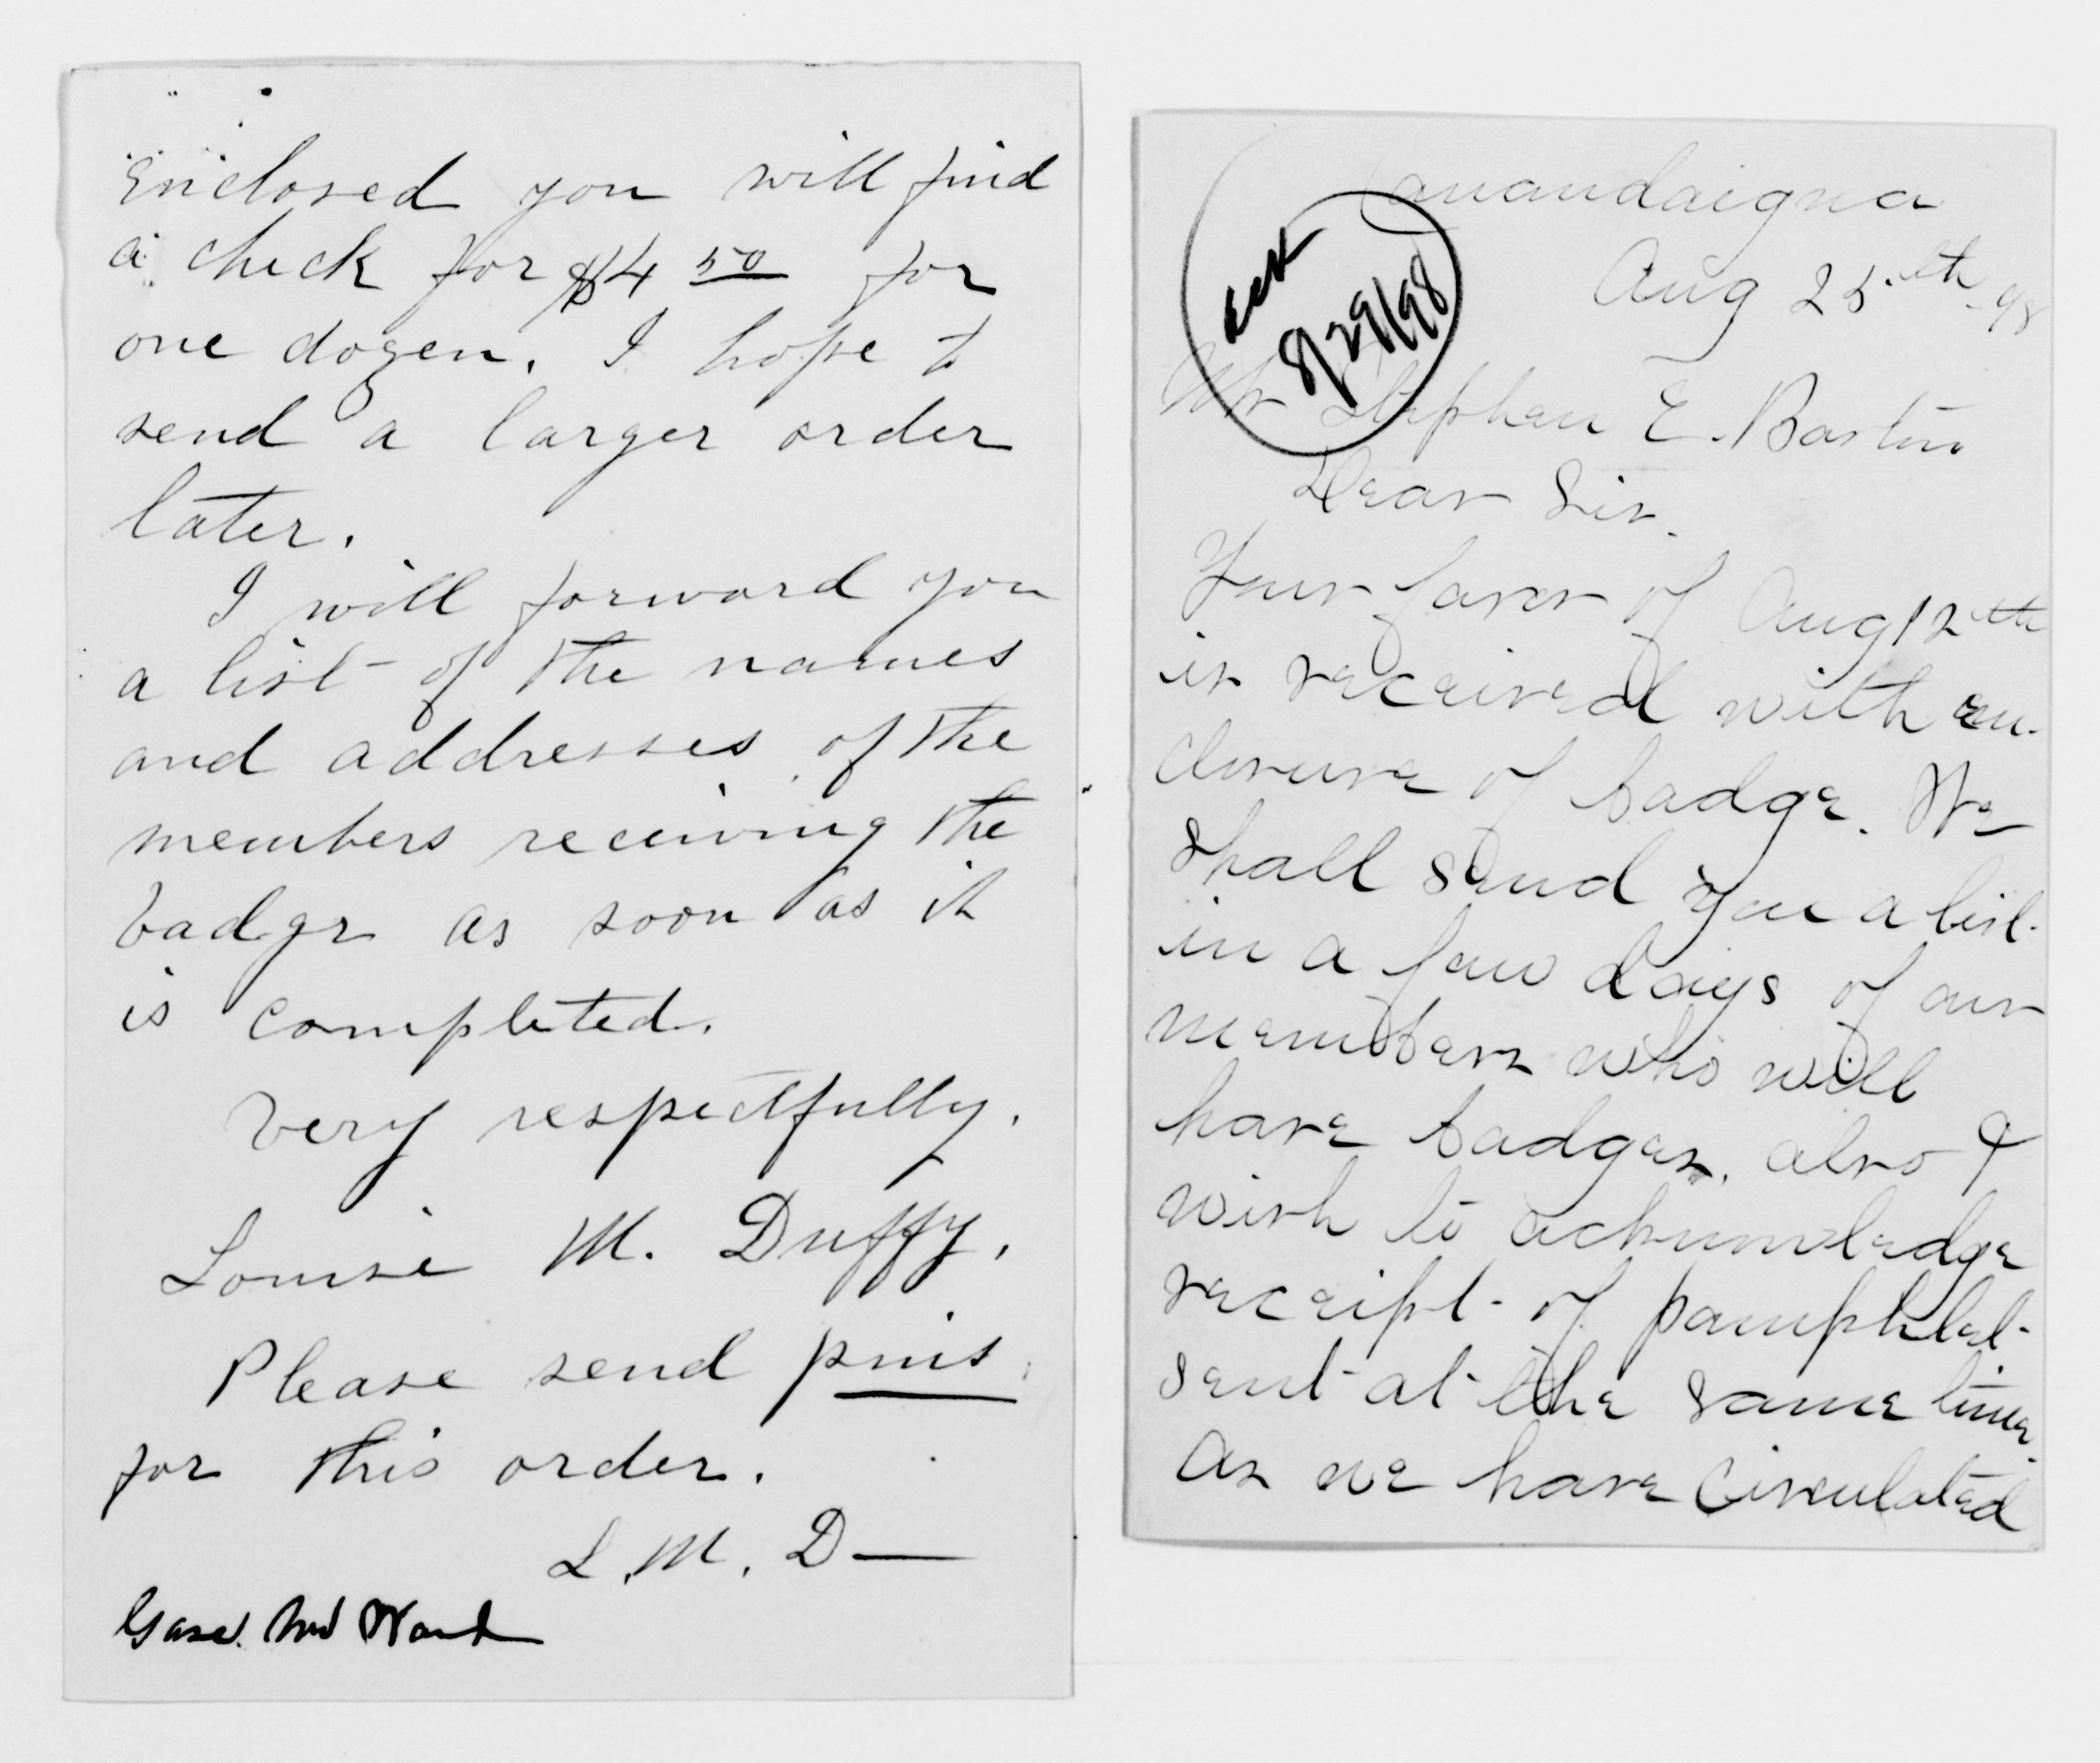 Enclosed you will find
a check for $4 50 for
one dozen. I hope to
send a larger order
later.
I will forward you
a list of the names
and addresses of the
members receiving the
badge as soon as it
is completed.
Very respectfully,
Louise M. Duffy.
Please send pins
for this order.
L. M. D—
Canandaigua
Aug 25th 98
ack
8/29/98
Mr Stephen E. Barton
Dear Sir.
Your favor of Aug 12th
is received with en-
closure of badge. We
shall send you a list
in a few days of our
members who will
have badges. also I
wish to acknowledge
receipt of pamphlet
sent at the same time.
As we have circulated